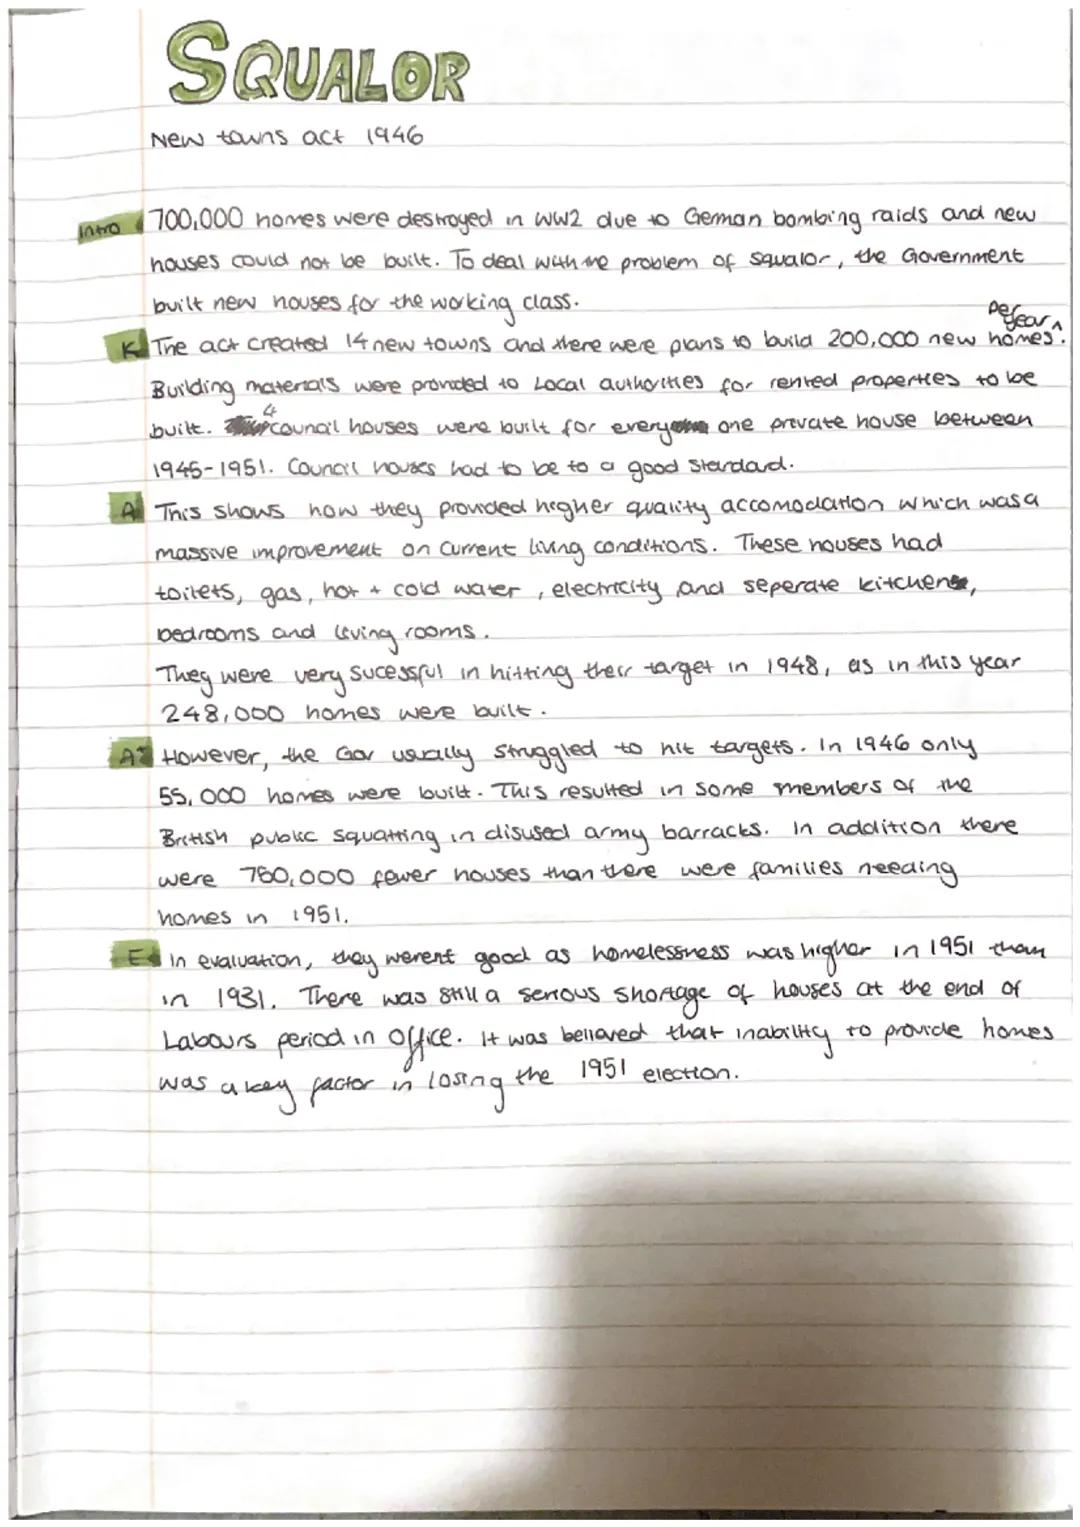 SQUALOR
New towns act 1946
Intro 700,000 homes were destroyed in WW2 due to German bombing raids and new
houses could not be built. To deal with the problem of squalor, the Government
built new houses for the working class.
per year
K The act created 14 new towns and there were plans to build 200,000 new homes ^.
Building materials were provided to Local authorities for rented properties to be
built. 4 council houses were built for every one private house between
1945-1951. Council houses had to be to a good standard.
A This shows how they provided higher quality accomodation which was a
massive improvement on current living conditions. These houses had
toilets, gas, hot + cold water, electricity and seperate kitchens,
bedrooms and living rooms.
They were very sucessful in hitting their target in 1948, as in this year
248,000 homes were built.
A+ However, the Gov usually struggled to hit targets. In 1946 only
55,000 homes were built. This resulted in some members of the
British public squatting in disused army barracks. In addition there
were 750,000 fewer houses than there were families needing
homes in 1951.
E In evaluation, they werent good as homelessness was higher in 1951 than
in 1931. There was still a serious shortage of houses at the end of
Labours period in office. It was believed that inability to provide homes
was a key factor in losing the 1951 election.